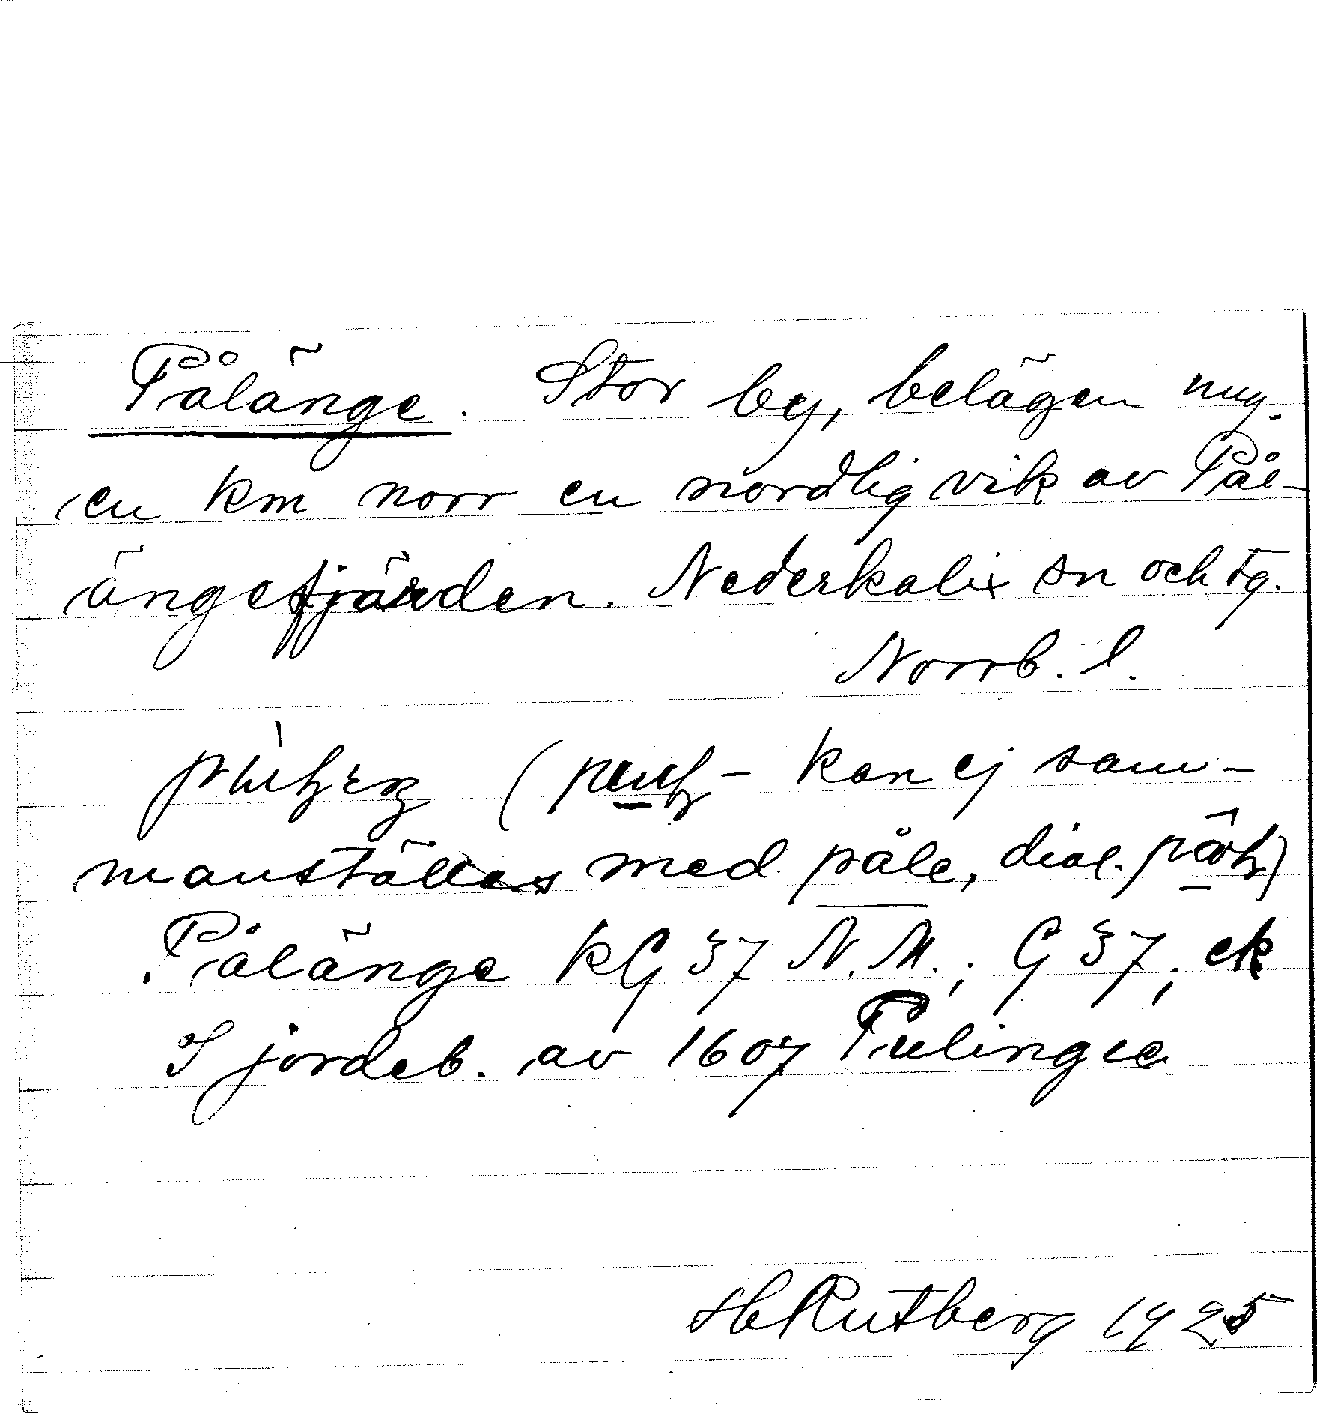 Pålänge. Stor by, belägen nug.
en km norr en nordlig vik av Pål-
ängefjärden. Nederkalix sn och tg.
Norrb. l.
( – kan ej sam-
manställas med påle, dial.
Pålänge KG 37 N.M.; G 37; ek
I jordeb. av 1607 Pulingee
H Rutberg 1925